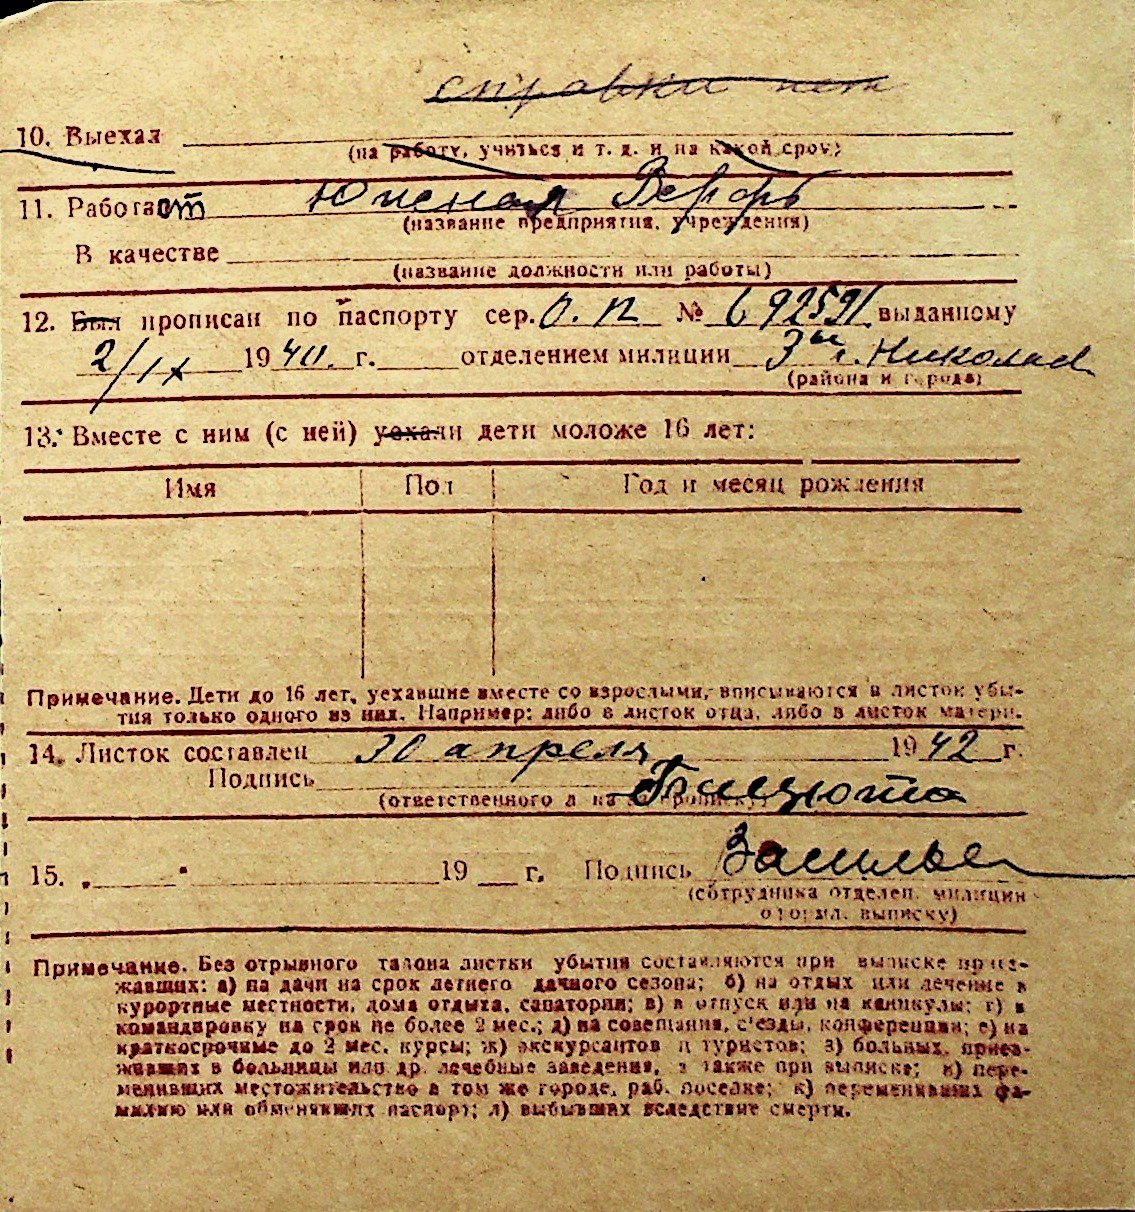 справки нет
10. Выехал
(на работу, учиться и т. д. и на какой срок)
11. Работает Южная Верфь
(название предприятия, учреждения)
В качестве
(название должности или работы)
12. Был прописан по паспорту сер. О.П № 692591 выданному
2/IX 1940 г. отделением милиции 3м г. Николаев
(района и города)
13. Вместе с ним (с ней) уехали дети моложе 16 лет:
Имя Пол Год и месяц рождения
Примечание. Дети до 16 лет, уехавшие вместе со взрослыми, вписываются в листок убы-
тия только одного из них. Например: либо в листок отца, либо в листок матери.
14. Листок составлен 30 апреля 1942 г.
Подпись
(ответственного л на прописку)
15. " " 19 г. Подпись Васильев
(сотрудника отделен. милиции
оформл. выписку)
Примечание. Без отрывного талона листки убытия составляются при выписке приез-
жавших: а) на дачи на срок летнего дачного сезона; б) на отдых или лечение в
курортные местности, дома отдыха, санатории; в) в отпуск или на каникулы; г) в
командировку на срок не более 2 мес.; д) на совещания, с'езды, конференции; е) на
краткосрочные до 2 мес. курсы; ж) экскурсантов и туристов; з) больных, приез-
жавших в больницы или др. лечебные заведения, а также при выписке; и) пере-
менивших местожительство в том же городе, раб. поселке; к) переменивших фа-
милию или обменявших паспорт; л) выбывших вследствие смерти.